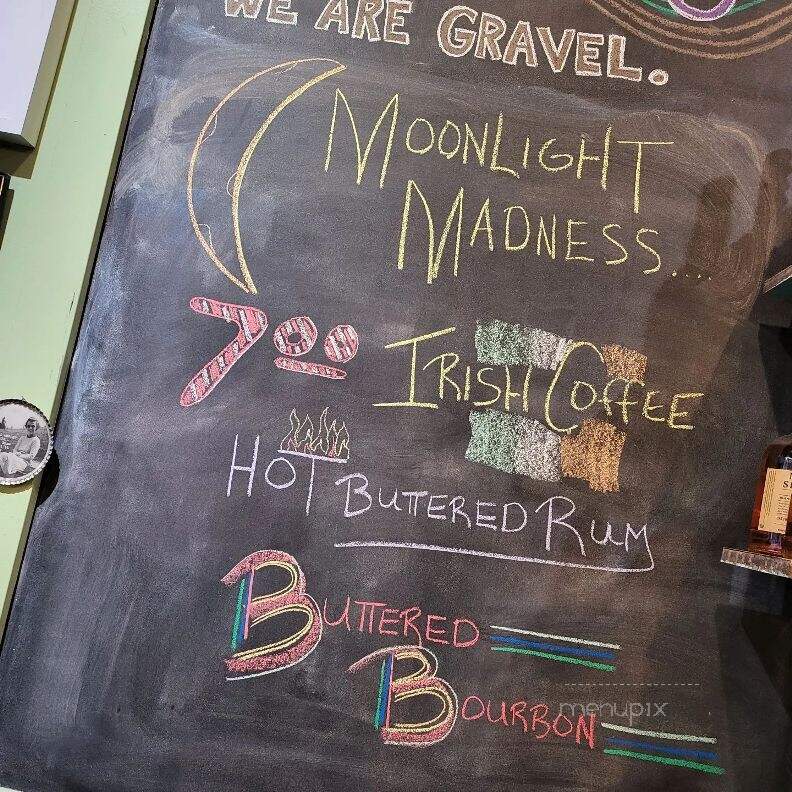 WE ARE GRAVEL.
MOONLIGHT
MADNESS....
7 00 IRISH COFFEE
HOT BUTTERED RUM
BUTTERED
BOURBON
menupix